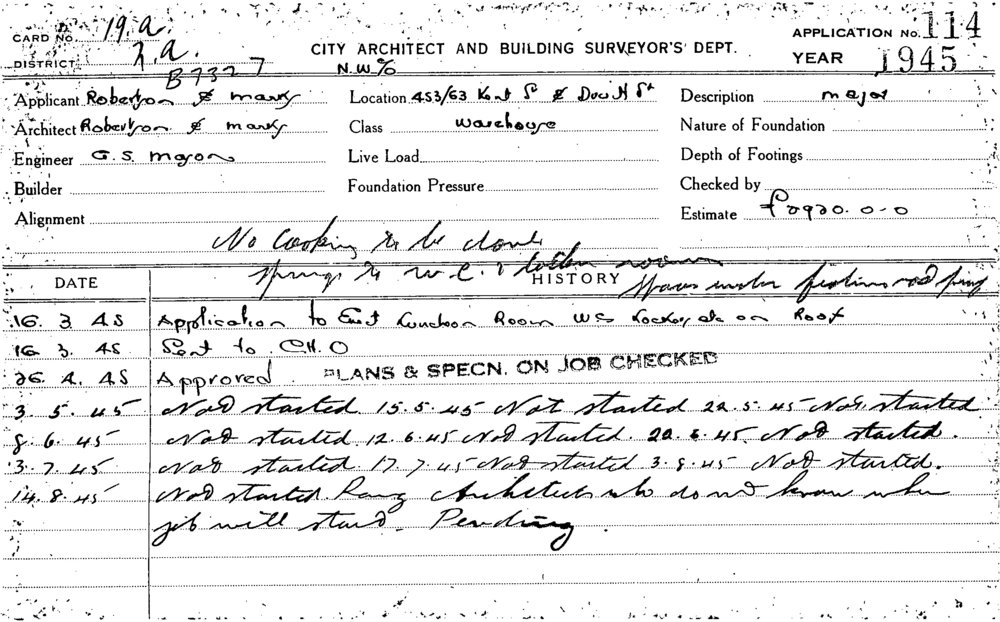 CARD No. 19.a.
DISTRICT 7.a.
B7327
CITY ARCHITECT AND BUILDING SURVEYOR'S DEPT.
N.W. %
APPLICATION No. 114
YEAR 1945
Applicant Robertson & marks Location 453/63 Kent St & Druitt St Description major
Architect Robertson & marks Class warehouse Nature of Foundation
Engineer G. S. mason Live Load Depth of Footings
Builder Foundation Pressure Checked by
Alignment Estimate £2920.0.0
No Cooking to be done
springs to w.c. &
DATE HISTORY
16. 3. 45 Application to Erect Luncheon Room WCs Lockers etc on Roof
16 3. 45 Sent to C.H.O
26. 4. 45 Approved PLANS & SPECN. ON JOB CHECKED
3. 5. 45 Not started 15.5.45 Not started 22.5.45 Not started
8. 6. 45 Not started. 12.6.45 Not started. 22.6.45. Not started.
3. 7. 45 Not started 17.7.45 Not started 3.8.45 Not started.
14. 8. 45 Not started Rang Architects who do not know when
job will start. Pending.